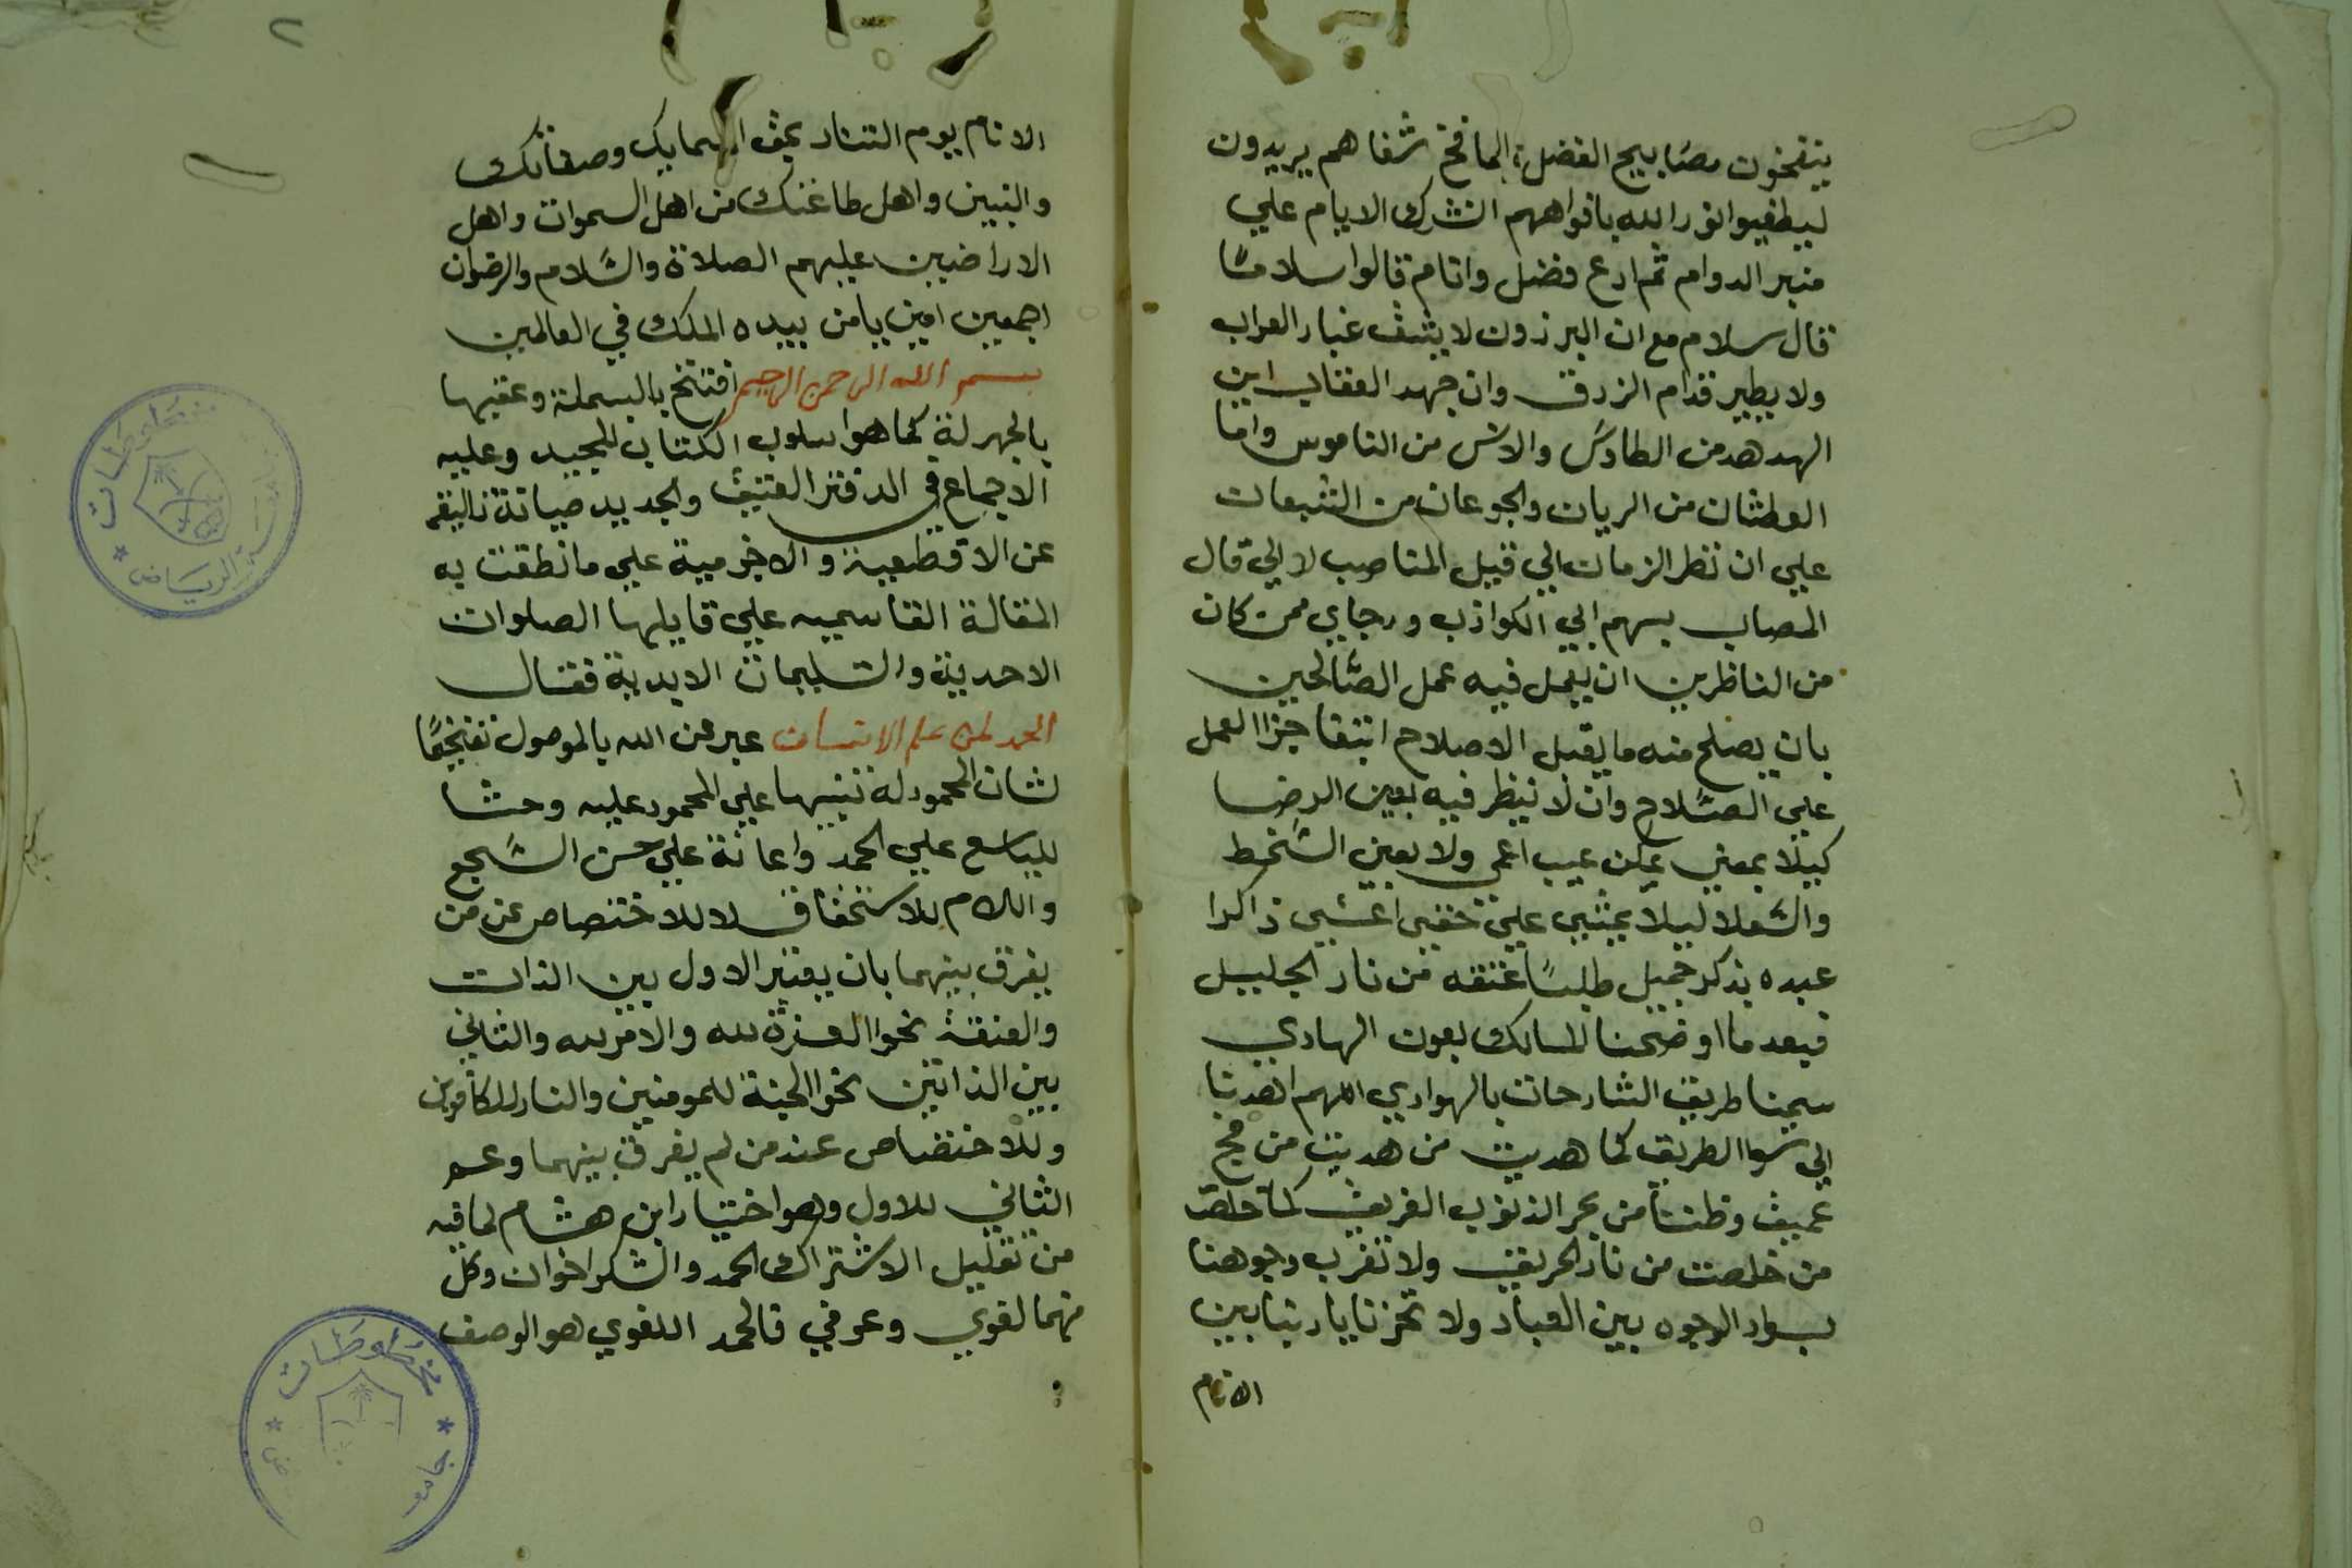 ينفخون مصابيح الفضل شفاهم يريدون
ليطفيوا نور الله بافواههم اشرك الايام علي
منبر الدوام ثم ادع فضل وانام قالوا سلاما
قال سلام مع ان البرذون لا يشق غبار العراب
ولا يطير قدام الزرق وان جهد العقاب اين
الهدهد من الطاوس والانس من الناموس واما
العطشان من الريان والجوعان من الشبعان
علي ان نظر الزمان الي قبيل المناصب لا الي قال
المصاب بسهم ابي الكواذب ورجاي ممن كان
من الناظرين ان يعمل فيه عمل الصالحين
بان يصلح منه ما يقبل الاصلاح ابتغا جزا العمل
علي الصلاح وان لا ينظر فيه بعين الرضا
كيلا بمعني عن عيب اعمي ولا بعين السخط
ليلا يمشي علي خفي اعشي ذاكرا
عبده بذكر جميل طلبا عتقه من نار الجليل
فبعد ما اوضحنا المسالك بعون الهادي
سمينا طريق الشارحات بالهوادي اللهم اهدنا
الي سوا الطريق كما هديت من هديت من فج
عميق من بحر الذنوب الغريق كما خلصت
من خلصت من نار الحريق ولا تقرب وجوهنا
بسواد الوجوه بين العباد ولا تخزنا يا ربنا بين
الانام
٢
الانام يوم التناد بحق اسمايك وصفاتك
والنبين واهل طاعتك من اهل السموات واهل
الاراضيين عليهم الصلاة والسلام والرضوان
اجمعين امين يا من بيده الملك في العالمين
بسم الله الرحمن الرحيم افتتح بالبسملة وعقبها
بالحمدلة كما هو اسلوب الكتاب المجيد وعليه
الاجماع في الدفتر العتيق والجديد صيانة تاليفه
عن الاقطعية والاجذمية علي ما نطقت به
المقالة القاسميه علي قايلها الصلوات
الاحدية والتسليمات الابدية فقال
الحمد لمن علم الانسان عبر عن الله بالموصول تفخيما
لشان المحمود له تنبيها علي المحمود عليه وحثا
للسامع علي الحمد واعانة علي حسن السجع
واللام للاستحقاق لا للاختصاص عن من
يفرق بينهما بان يعتبر الاول بين الذات
والصفة نحو العزة لله والامر لله والثاني
بين الذاتين نحو الجنة للمومنين والنار للكافرين
وللاختصاص عند من لم يفرق بينهما وعم
الثاني للاول وهو اختيار ابن هشام لما فيه
من تقليل الاشتراك الحمد والشكر اخوان وكل
منهما لغوي وعرفي فالحمد اللغوي هو الوصف
مخطوطات
الرياض
مخطوطات
جامعة